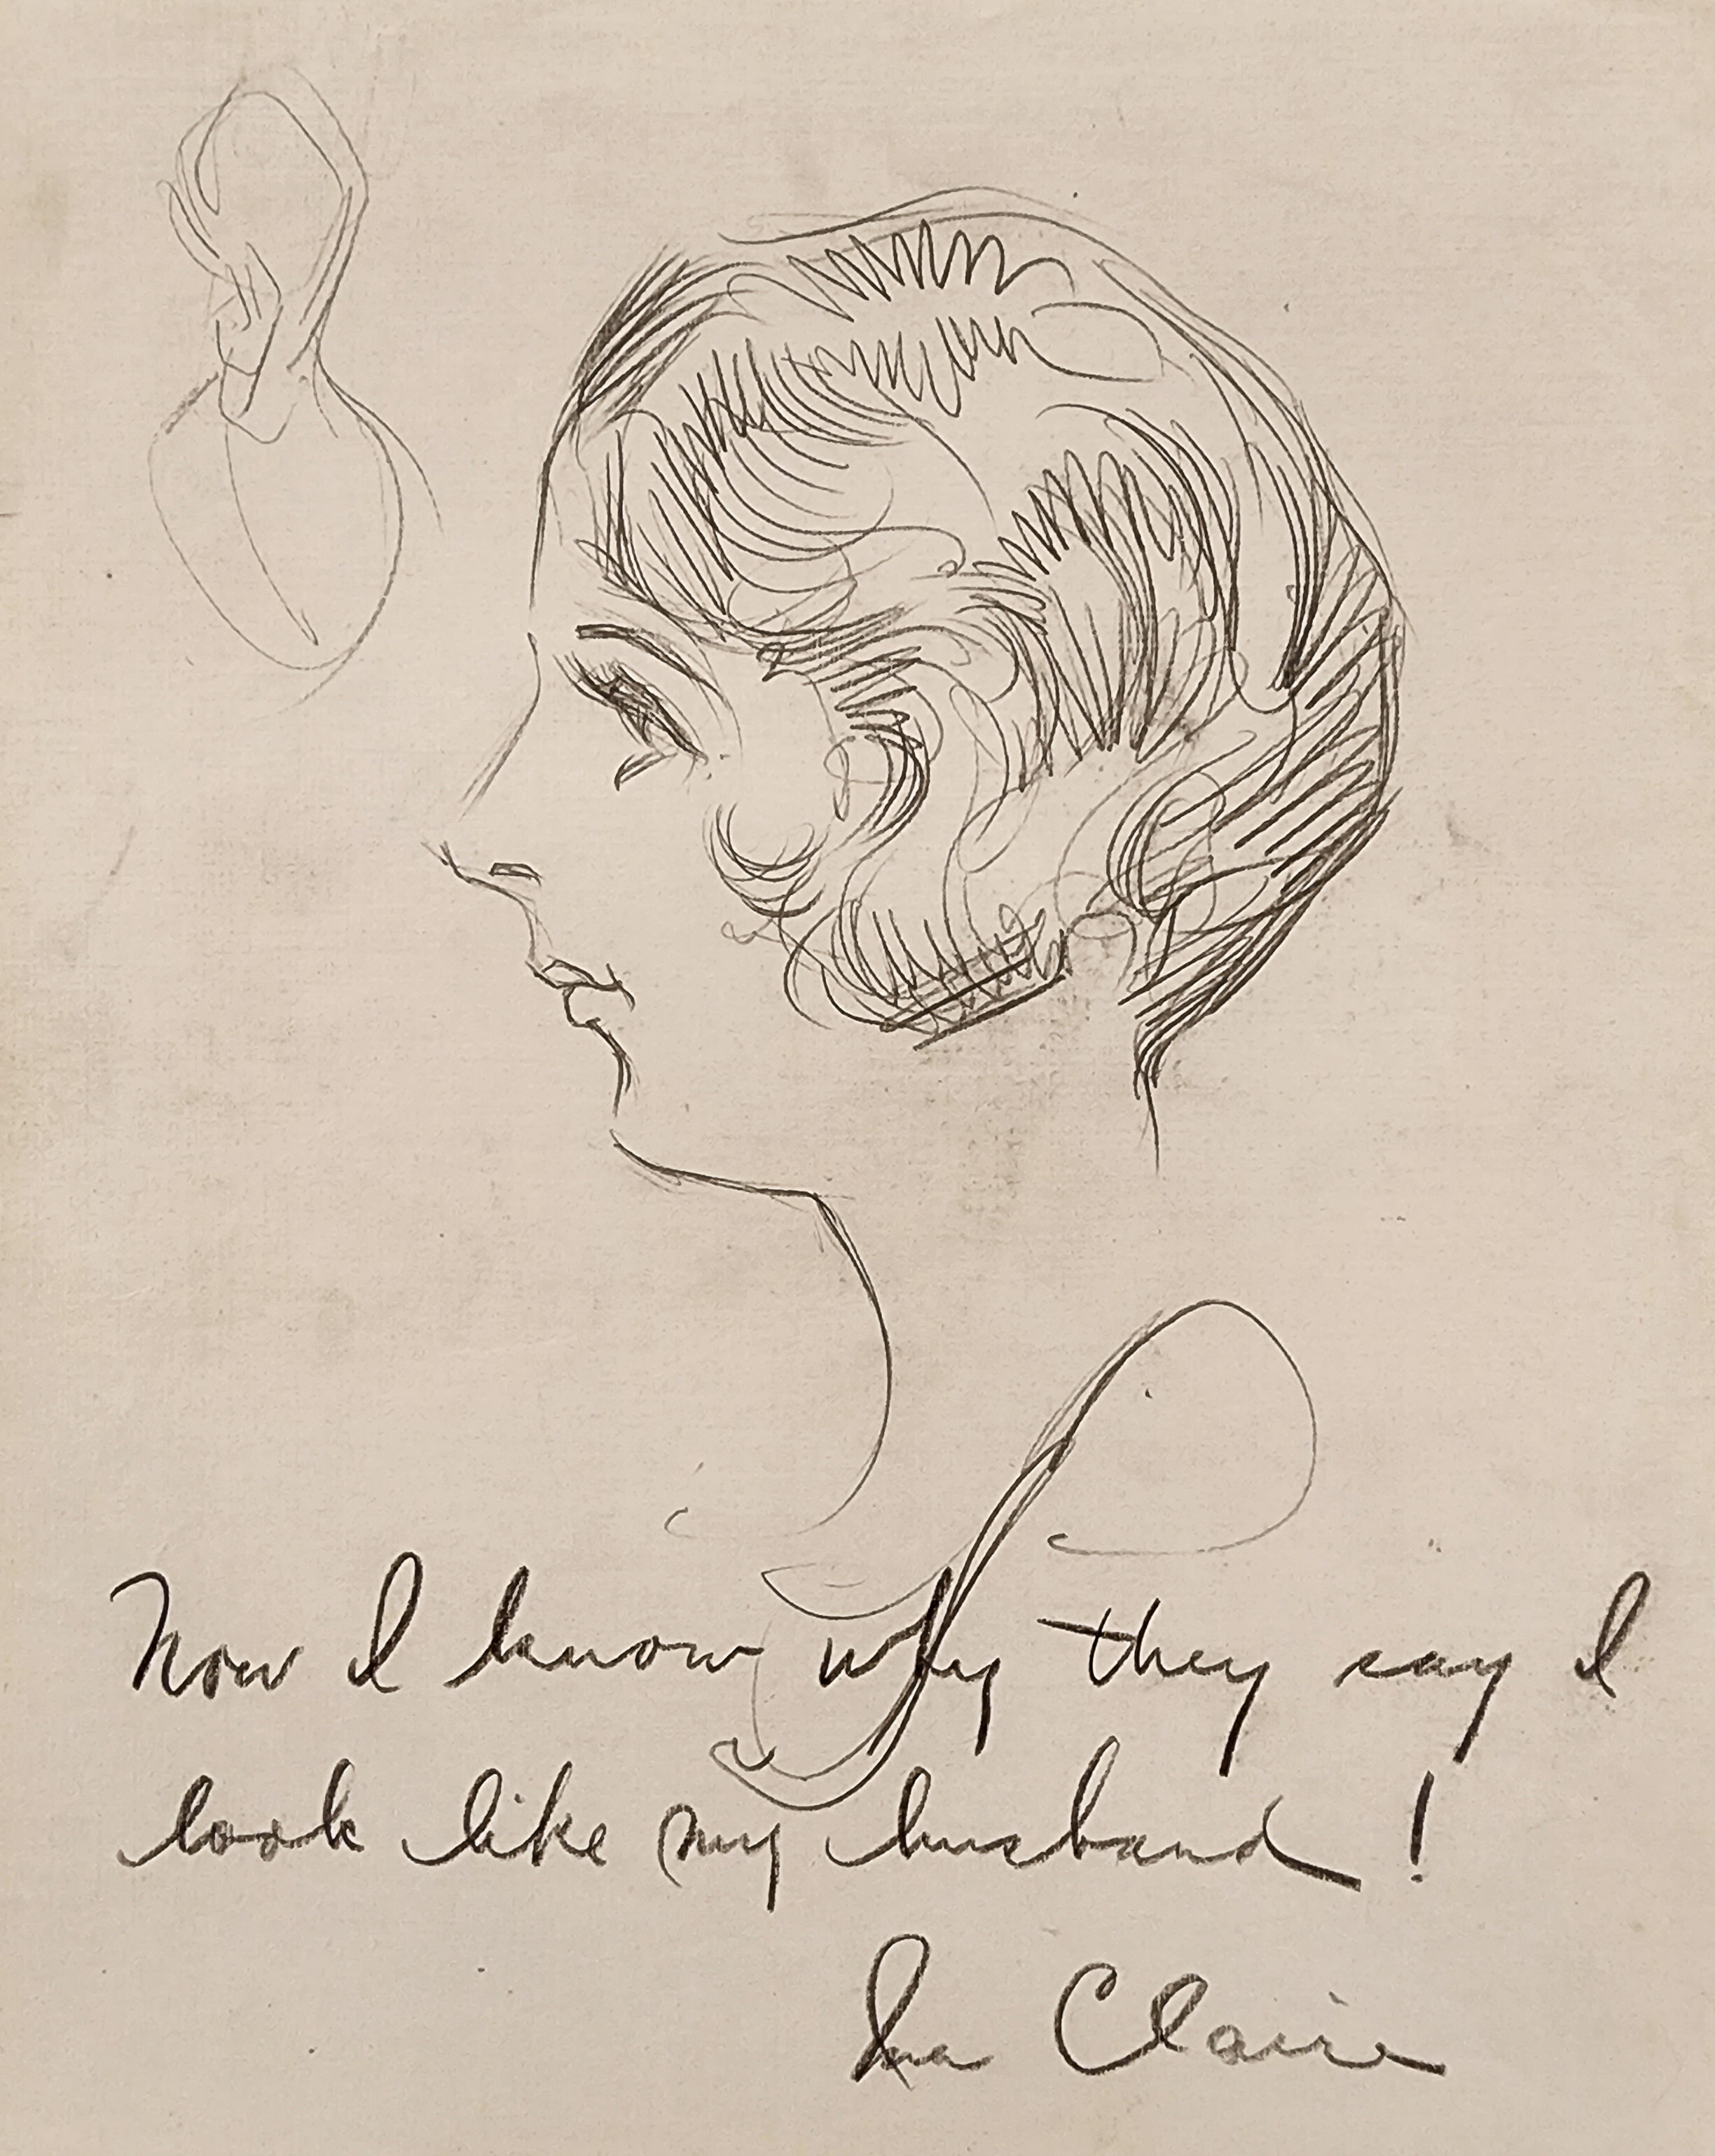 Now I know why they say I
look like my husband!
Ina Claire